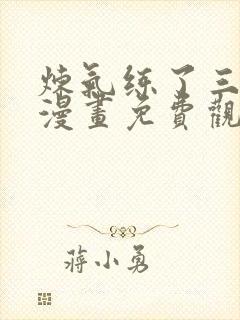 煉氣练了三
漫畫免費觀
蔣小勇